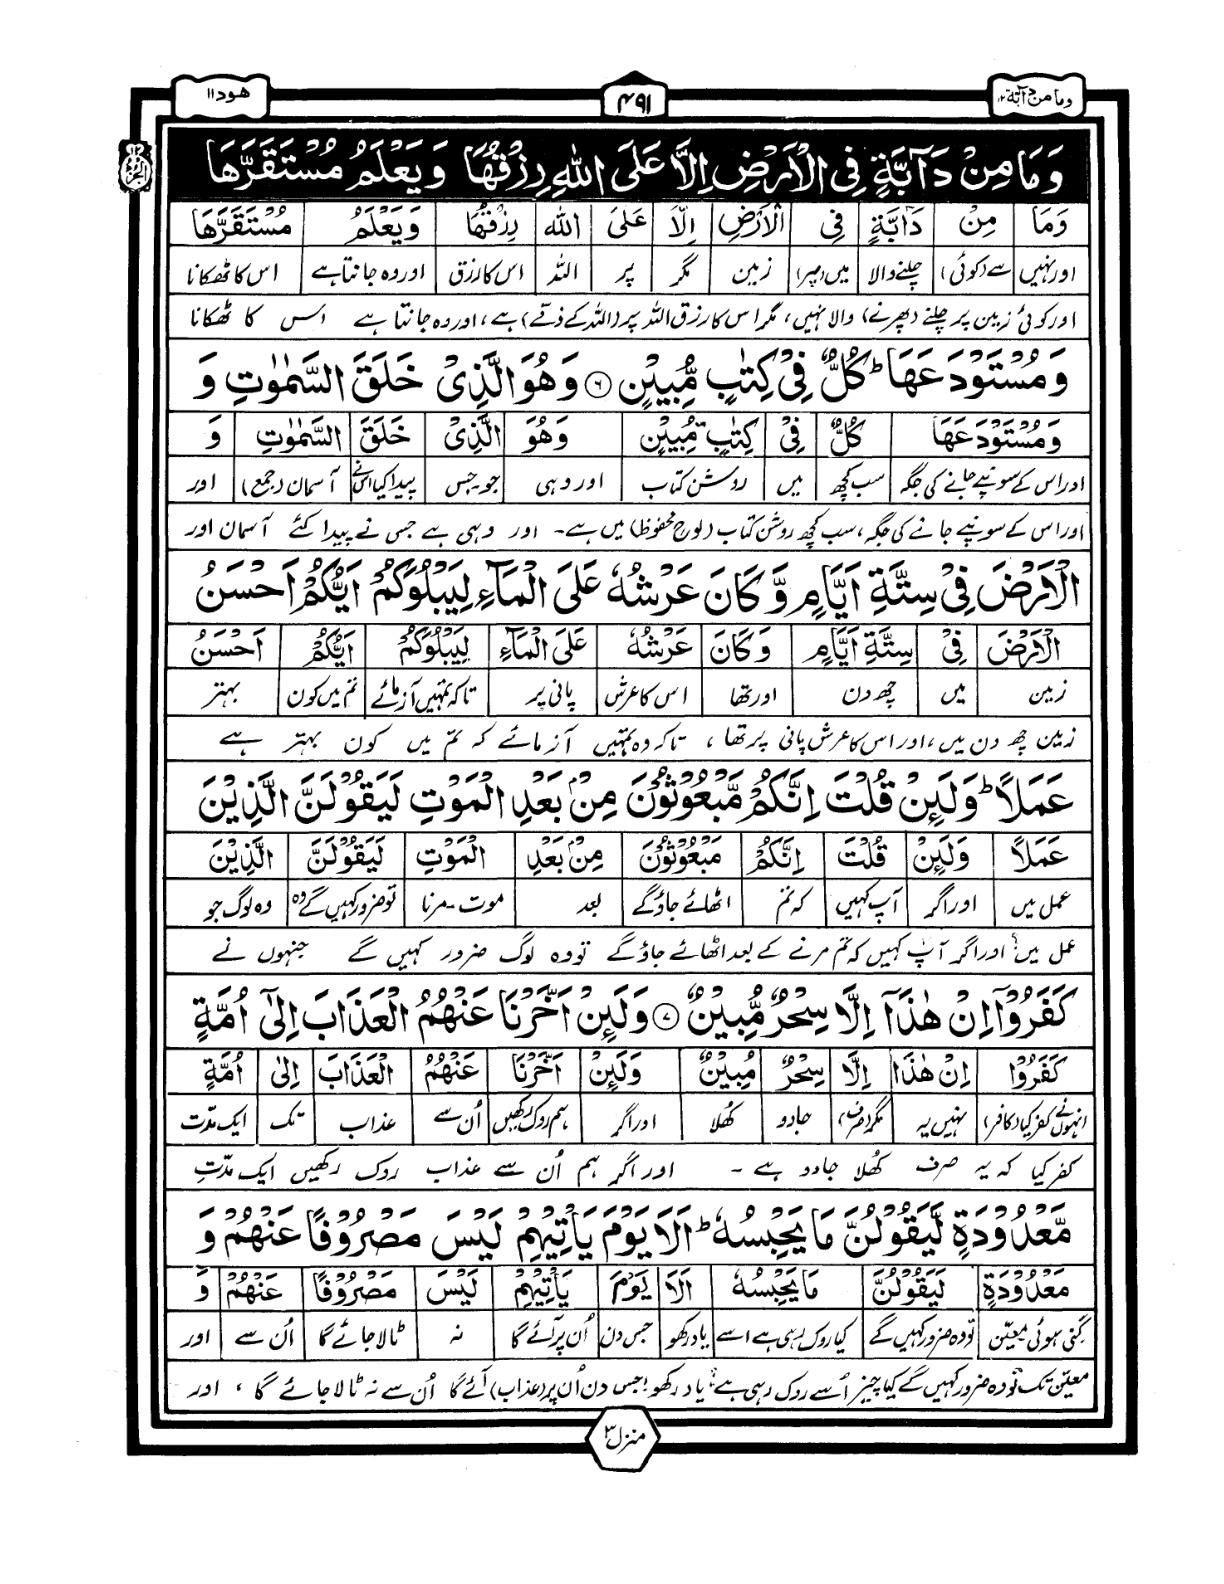 ھود ۱۱
۴۹۱
وما من دآبۃ ۱۲
وَمَا مِنْ دَآبَّةٍ فِی الْاَرْضِ اِلَّا عَلَی اللّٰهِ رِزْقُهَا وَیَعْلَمُ مُسْتَقَرَّهَا
وَمَا مِنْ دَآبَّةٍ فِی الْاَرْضِ اِلَّا عَلَی اللّٰه رِزْقُهَا وَیَعْلَمُ مُسْتَقَرَّهَا
اور نہیں سے (کوئی) چلنے والا میں (پر) زمین مگر پر اللہ اس کا رزق اور وہ جانتا ہے اس کا ٹھکانا
اور کوئی زمین پر چلنے (پھرنے) والا نہیں، مگر اس کا رزق اللہ پر (اللہ کے ذمے) ہے، اور وہ جانتا ہے اس کا ٹھکانا
وَمُسْتَوْدَعَهَا ؕ كُلٌّ فِیْ كِتٰبٍ مُّبِیْنٍ ۶ وَهُوَ الَّذِیْ خَلَقَ السَّمٰوٰتِ وَ
وَمُسْتَوْدَعَهَا كُلٌّ فِیْ كِتٰبٍ مُّبِیْنٍ وَهُوَ الَّذِیْ خَلَقَ السَّمٰوٰتِ وَ
اور اس کے سونپے جانے کی جگہ سب کچھ میں روشن کتاب اور وہی جو۔جس پیدا کیا اس نے آسمان (جمع) اور
اور اس کے سونپے جانے کی جگہ، سب کچھ روشن کتاب (لوح محفوظ) میں ہے۔ اور وہی ہے جس نے پیدا کئے آسمان اور
الْاَرْضَ فِیْ سِتَّةِ اَیَّامٍ وَّكَانَ عَرْشُهٗ عَلَی الْمَآءِ لِیَبْلُوَكُمْ اَیُّكُمْ اَحْسَنُ
الْاَرْضَ فِیْ سِتَّةِ اَیَّامٍ وَكَانَ عَرْشُهٗ عَلَی الْمَآءِ لِیَبْلُوَكُمْ اَیُّكُمْ اَحْسَنُ
زمین میں چھ دن اور تھا اس کا عرش پانی پر تاکہ تمہیں آزمائے تم میں کون بہتر
زمین چھ دن میں، اور اس کا عرش پانی پر تھا، تاکہ وہ تمہیں آزمائے کہ تم میں کون بہتر ہے
عَمَلًا ؕ وَلَئِنْ قُلْتَ اِنَّكُمْ مَّبْعُوْثُوْنَ مِنْۢ بَعْدِ الْمَوْتِ لَیَقُوْلَنَّ الَّذِیْنَ
عَمَلًا وَلَئِنْ قُلْتَ اِنَّكُمْ مَبْعُوْثُوْنَ مِنْۢ بَعْدِ الْمَوْتِ لَیَقُوْلَنَّ الَّذِیْنَ
عمل میں اور اگر آپ کہیں کہ تم اٹھائے جاؤگے بعد موت۔مرنا تو ضرور کہیں گے وہ وہ لوگ جو
عمل میں؟ اور اگر آپ کہیں کہ تم مرنے کے بعد اٹھائے جاؤگے تو وہ لوگ ضرور کہیں گے جنہوں نے
كَفَرُوْۤا اِنْ هٰذَاۤ اِلَّا سِحْرٌ مُّبِیْنٌ ۷ وَلَئِنْ اَخَّرْنَا عَنْهُمُ الْعَذَابَ اِلٰۤی اُمَّةٍ
كَفَرُوْا اِنْ هٰذَا اِلَّا سِحْرٌ مُبِیْنٌ وَلَئِنْ اَخَّرْنَا عَنْهُمُ الْعَذَابَ اِلٰی اُمَّةٍ
انہوں نے کفر کیا (کافر) نہیں یہ مگر (صرف) جادو کھلا اور اگر ہم روک رکھیں اُن سے عذاب تک ایک مدّت
کفر کیا کہ یہ صرف کُھلا جادو ہے ۔ اور اگر ہم اُن سے عذاب روک رکھیں ایک مدّتِ
مَّعْدُوْدَةٍ لَّیَقُوْلُنَّ مَا یَحْبِسُهٗ ؕ اَلَا یَوْمَ یَاْتِیْهِمْ لَیْسَ مَصْرُوْفًا عَنْهُمْ وَ
مَعْدُوْدَةٍ لَیَقُوْلُنَّ مَا یَحْبِسُهٗ اَلَا یَوْمَ یَاْتِیْهِمْ لَیْسَ مَصْرُوْفًا عَنْهُمْ وَ
گنی ہوئی معیّن تو وہ ضرور کہیں گے کیا روک رہی ہے اسے یاد رکھو جس دن اُن پر آئے گا نہ ٹالا جائے گا اُن سے اور
معیّن تک تو وہ ضرور کہیں گے کیا چیز اُسے روک رہی ہے؟ یاد رکھو! جس دن اُن پر (عذاب) آئے گا اُن سے نہ ٹالا جائے گا، اور
منزل ۳